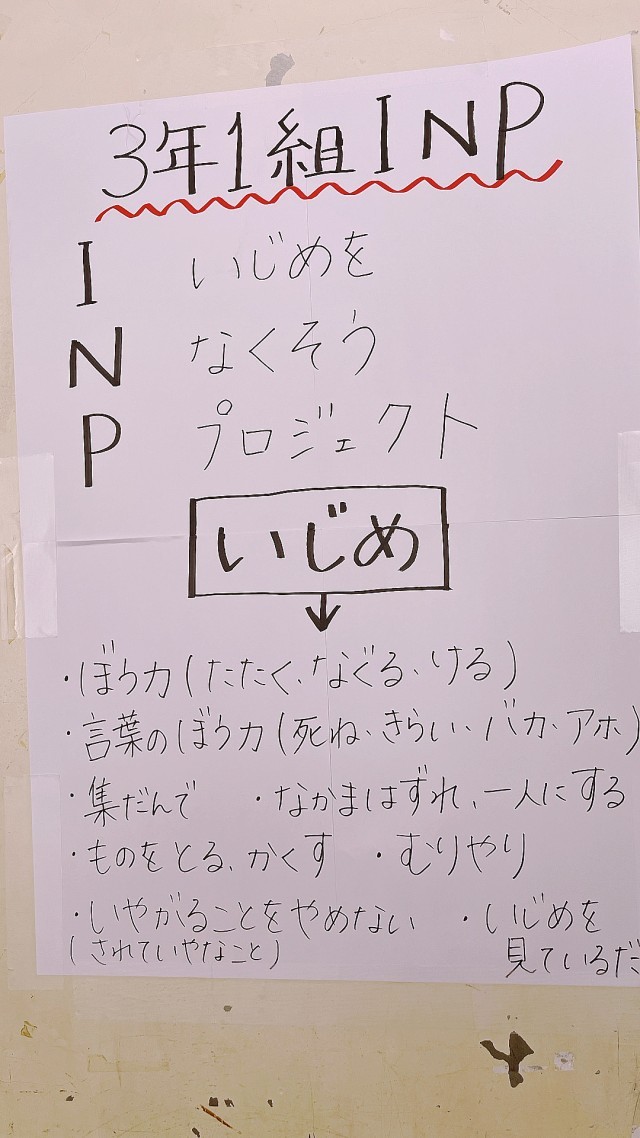 3年1組INP
I いじめを
N なくそう
P プロジェクト
いじめ
・ぼう力(たたく、なぐる、ける)
・言葉のぼう力(死ね、きらい、バカ、アホ)
・集だんで ・なかまはずれ、一人にする
・ものをとる、かくす ・むりやり
・いやがることをやめない ・いじめを
(されていやなこと) 見ているだ